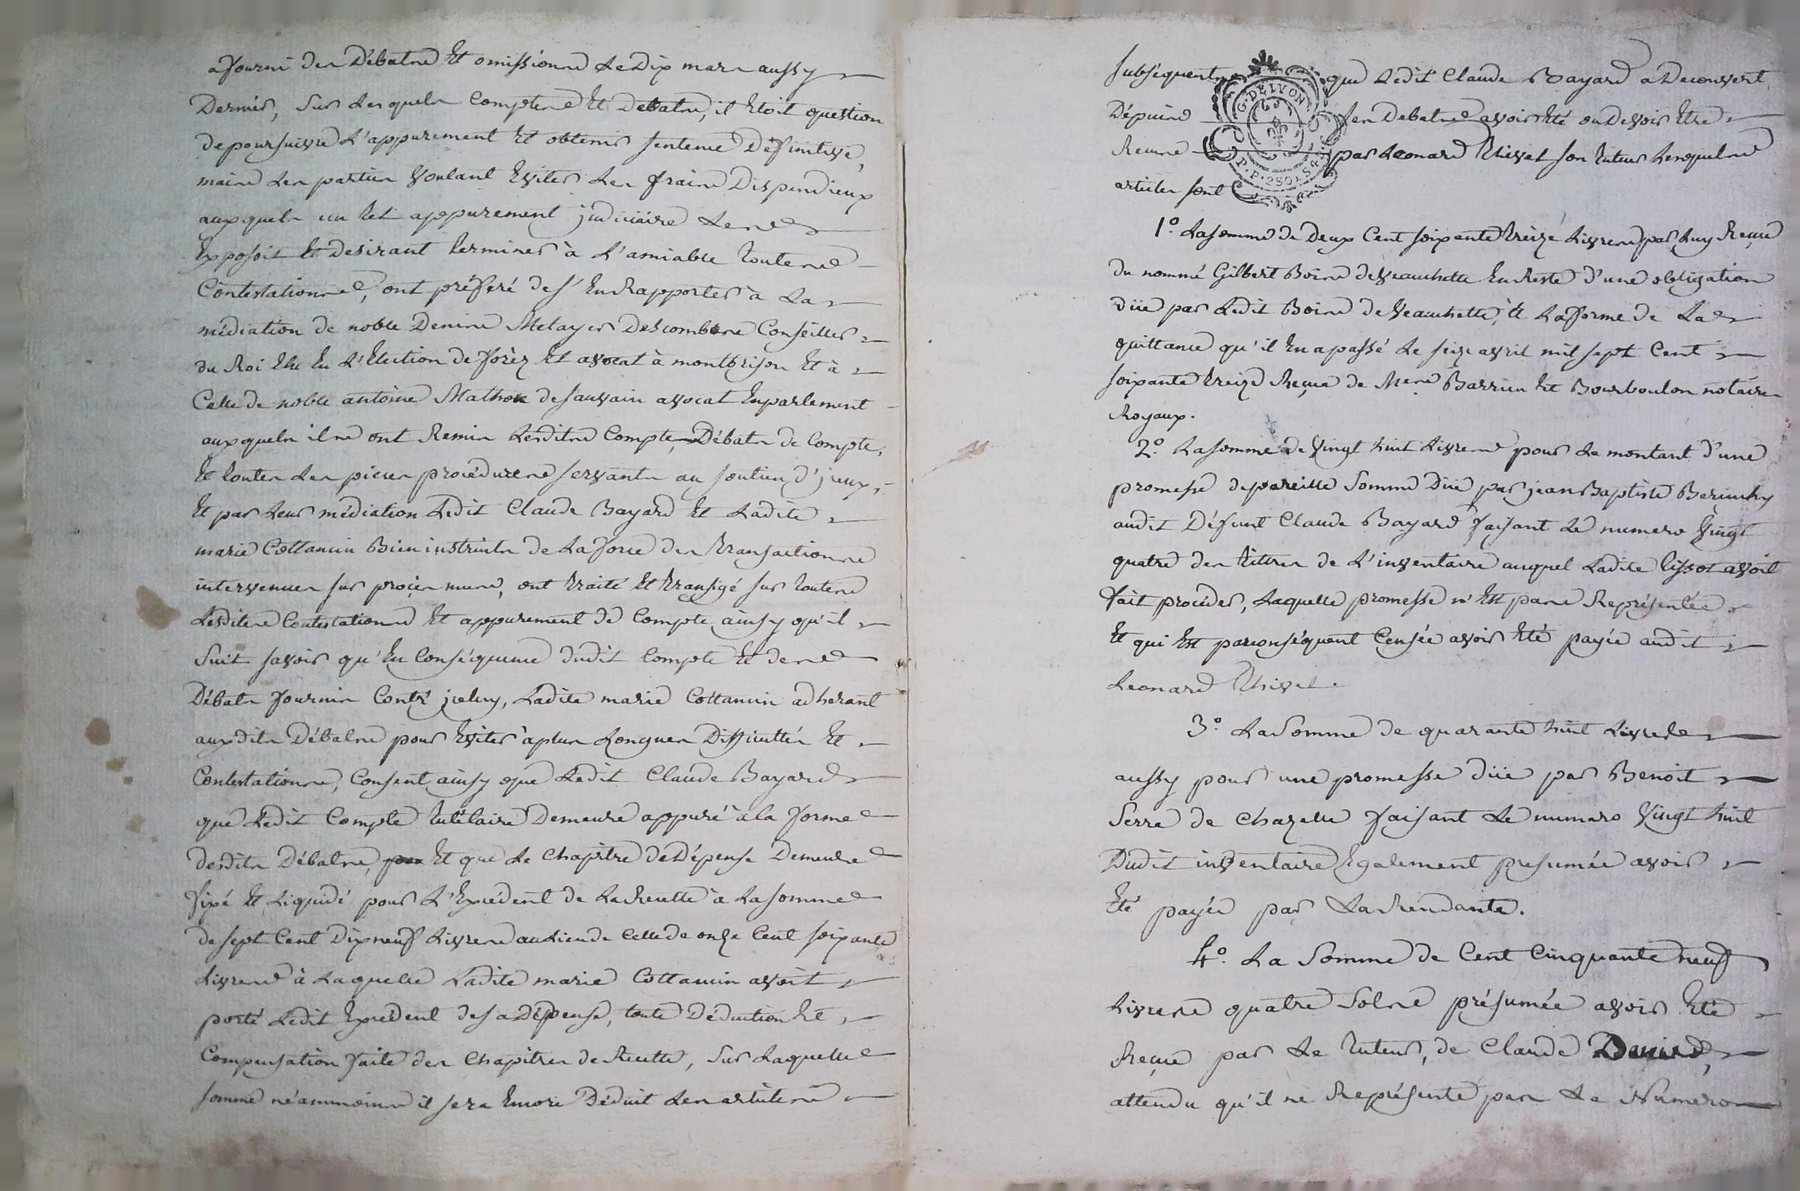 a fourni des Débatre Et omissions Le Dix mars aussy
Dernier, Sur Lesquels Comptes Et Debatre, il Etoit question
de poursuivre L'appurement Et obtenir sentence Définitive,
mais les parties voulant Eviter Les fraix Dispendieux
auxquels un tel appurement judiciaire Les
Exposoit Et desirant terminer à L'amiable toutes
Contestations, ont préferé de s'En Rapporter à La
médiation de noble Denis Metayer Descombes Conseiller
du Roi En L'Election de forêz Et avocat à montbrison Et à
Celle de noble antoine Mathon de sauvain avocat En parlement
auxquels ils ont Remis Lesdits Comptes, Débats de Compte,
Et toutes Les pieces procédures servants au soutien d'jceux,
Et par Leur médiation Ledit Claude Bayard Et Ladite
marie Cottancin Bien instruits de La force des Transactions
intervenues sur procès mûrs, ont traité Et transigé sur toutes
Lesdites Contestations Et appurement de Compte ainsy qu'il
Suit savoir qu'En Conséquence dudit Compte Et des
Débats fournis Contr' jceluy, Ladite marie Cottancin adhérant
auxdits Débats pour Eviter à plus Longues Difficultés Et
Contestations, Consent ainsy que Ledit Claude Bayard
que Ledit Compte tutélaire Demeure appuré à la forme
desdits Débats, Et que Le Chapitre de Dépense Demeure
fixé Et Liquidé pour L'Excédent de La Recette à La somme
de sept Cent Dix neuf Livres au Lieu de Celle de onze Cent soixante
Livres à Laquelle Ladite marie Cottancin avoit
porté Ledit Excédent de sa Dépense, toute Déduction Et
Compensation faite des Chapitres de Recette, Sur Laquelle
somme néammoins il sera Encore Déduit Les articles
subséquents que Ledit Claude Bayard a Decouvert
G. DE LYON
Dépuis ses Debats avoir Eté ou Devoir Etre
Reçus par Leonard Thivet son tuteur Lesquels
articles sont
1.° La somme de Deux Cent soixante treize Livres par Luy Reçue
du nommé Gilbert Boire de Veauchette En Reste d'une obligation
düe par Ledit Boire de Veauchette, à La forme de La
quittance qu'il En a passé Le seize avril mil sept Cent
soixante treize Reçue de Mes Barrieu Et Bourboulon notaires
Royaux.
2.° La somme de Vingt huit Livres pour Le montant d'une
promesse de pareille Somme Düe par jean Baptiste
audit Défunt Claude Bayard faisant Le numero Vingt
quatre des titres de L'inventaire auquel Ladite tissot avoit
fait procéder, Laquelle promesse n'Est pas Représentée
Et qui Est par conséquent Censée avoir Eté payée audit
Leonard Thivet.
3.° La Somme de quarante huit Livres
aussy pour une promesse düe par Benoit
Serre de Chazelle faisant Le numero Vingt huit
Dudit inventaire Egalement presumée avoir
Eté payée par La Rendante.
4.° La Somme de Cent Cinquante neuf
Livres quatre Sols présumée avoir Eté
Reçue par Le tuteur, de Claude
attendu qu'il ne Représente pas Le Numero